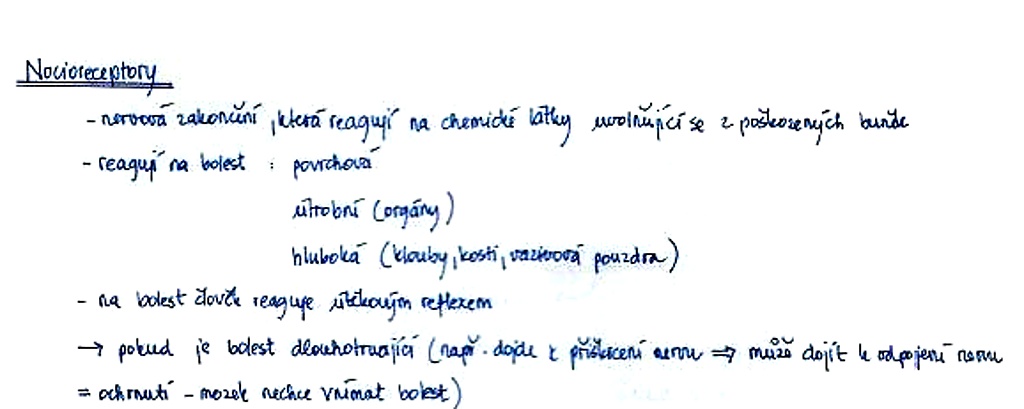 Nocioreceptory
- nervová zakončení, která reagují na chemické látky uvolňující se z poškozených buněk
- reagují na bolest : povrchová
útrobní (orgány)
hluboká (klouby, kosti, vazivová pouzdra)
- na bolest člověk reaguje útěkovým reflexem
→ pokud je bolest dlouhotrvající (např. dojde k přiškrcení nervu ⇒ může dojít k odpojení nervu
= ochrnutí - mozek nechce vnímat bolest)